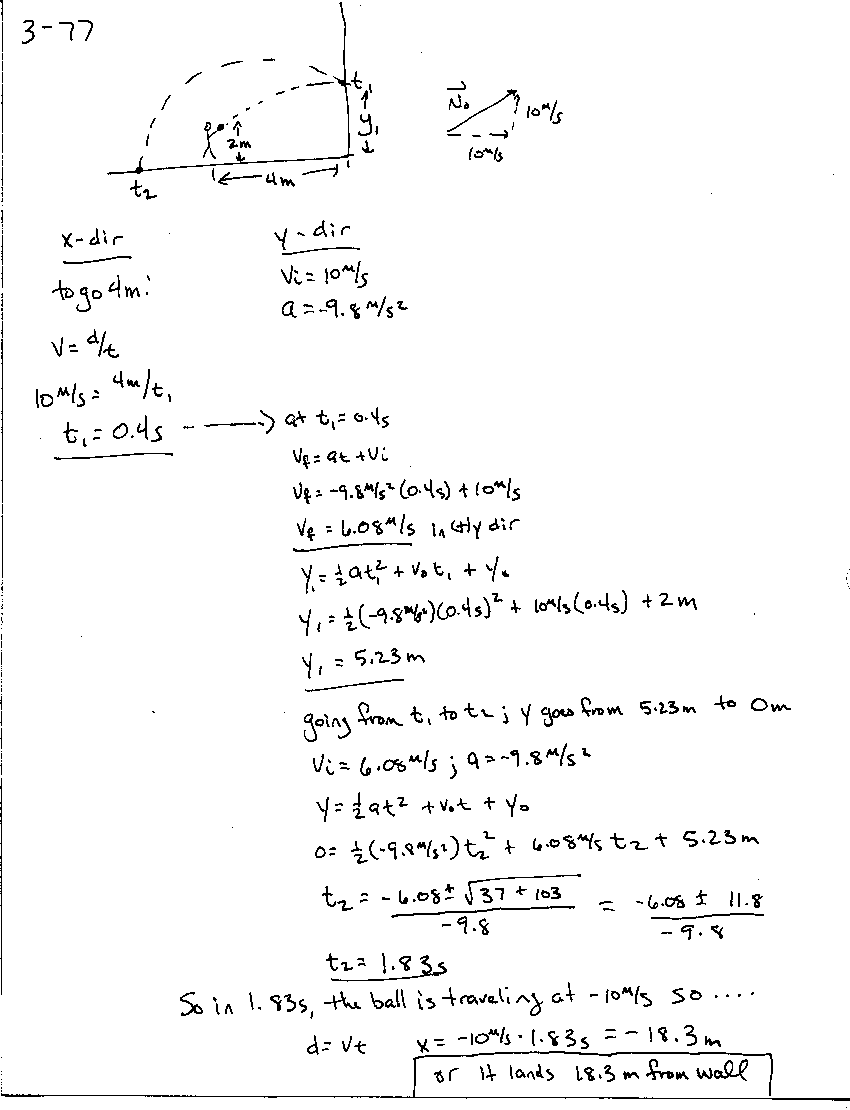 3-77
t₁
N₀ 10 m/s
y₁
2m
10 m/s
4m
t₂
x-dir y-dir
to go 4m: Vi = 10 m/s
a = -9.8 m/s²
V = d/t
10 m/s = 4m/t₁
t₁ = 0.4s → at t₁ = 0.4s
Vf = at + Vi
Vf = -9.8 m/s² (0.4s) + 10 m/s
Vf = 6.08 m/s in (+)y dir
y₁ = ½at₁² + V₀t₁ + y₀
y₁ = ½(-9.8 m/s²)(0.4s)² + 10 m/s (0.4s) + 2m
y₁ = 5.23m
going from t₁ to t₂; y goes from 5.23m to 0m
Vi = 6.08 m/s; a = -9.8 m/s²
y = ½at² + V₀t + y₀
0 = ½(-9.8 m/s²)t₂² + 6.08 m/s t₂ + 5.23m
t₂ = -6.08 ± √37 + 103 / -9.8 = -6.08 ± 11.8 / -9.8
t₂ = 1.83s
So in 1.83s, the ball is traveling at -10 m/s so ....
d = Vt x = -10 m/s · 1.83s = -18.3m
or it lands 18.3 m from wall